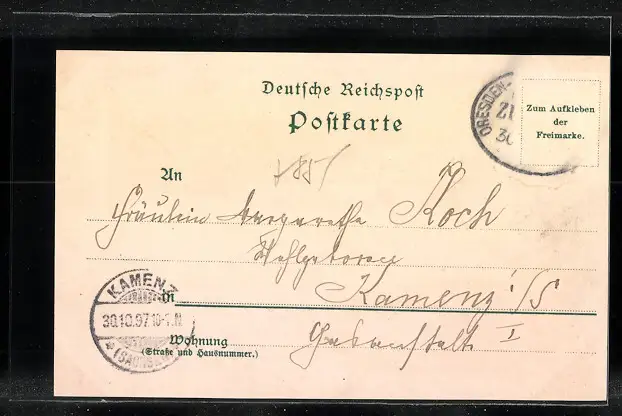 Deutsche Reichspost
Postkarte
DRESDEN-
30
Zum Aufkleben
der
Freimarke.
An
Fräulein Margarethe Koch
Wohlgeboren
in
Kamenz i/S
KAMENZ
30.10.97.10-1.N
(SACHSEN)
Wohnung
(Straße und Hausnummer.)
Gasanstalt I